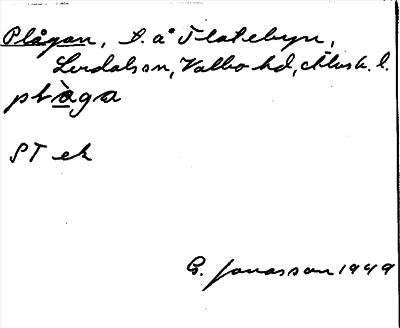 Plågan, S. å Flatebyn,
Lerdalsn, Valbo hd, Älvsb. l.
plàga
ST ek
G. Jonasson 1949